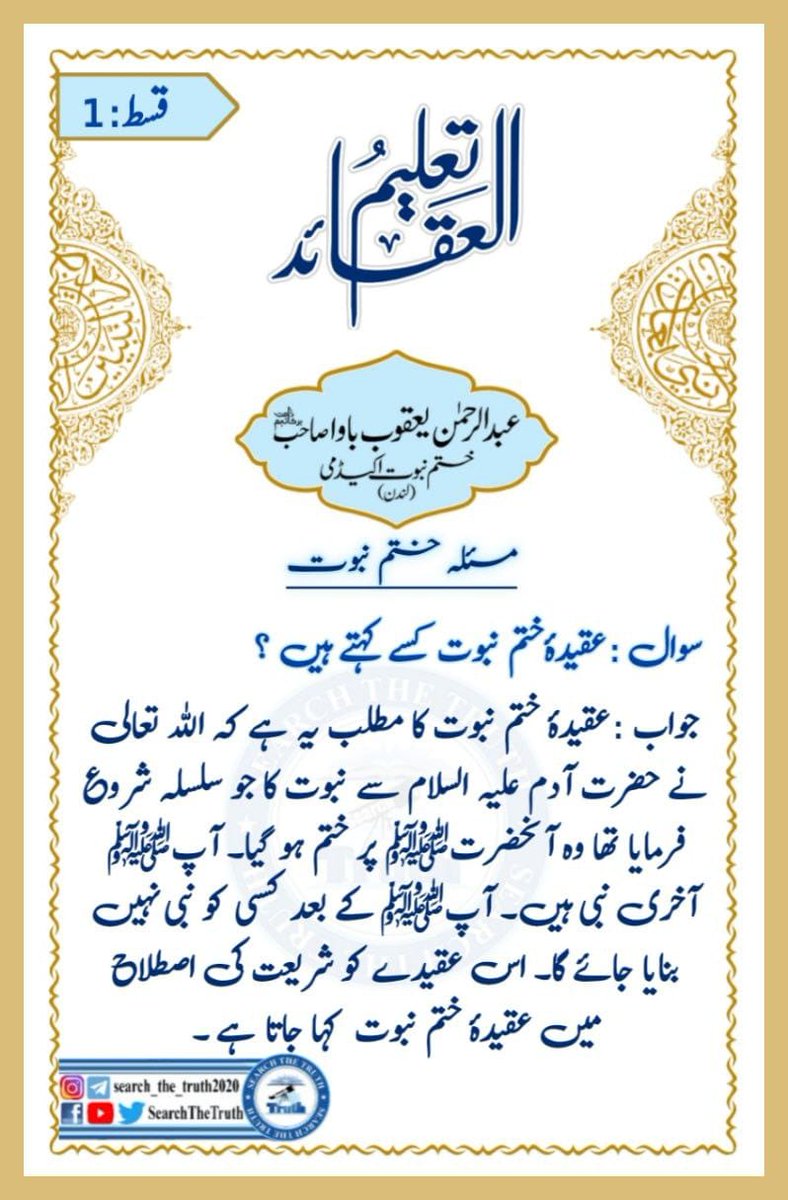 قسط:1
تعلیمُ
العقائد
عبدالرحمٰن یعقوب باوا صاحب دامت برکاتہم
ختم نبوت اکیڈمی
(لندن)
مسئلہ ختم نبوت
سوال : عقیدۂ ختم نبوت کسے کہتے ہیں ؟
جواب : عقیدۂ ختم نبوت کا مطلب یہ ہے کہ اللہ تعالی
نے حضرت آدم علیہ السلام سے نبوت کا جو سلسلہ شروع
فرمایا تھا وہ آنحضرت ﷺ پر ختم ہو گیا۔ آپ ﷺ
آخری نبی ہیں۔ آپ ﷺ کے بعد کسی کو نبی نہیں
بنایا جائے گا۔ اس عقیدے کو شریعت کی اصطلاح
میں عقیدۂ ختم نبوت کہا جاتا ہے ۔
search_the_truth2020
SearchTheTruth
SEARCH THE TRUTH
Truth